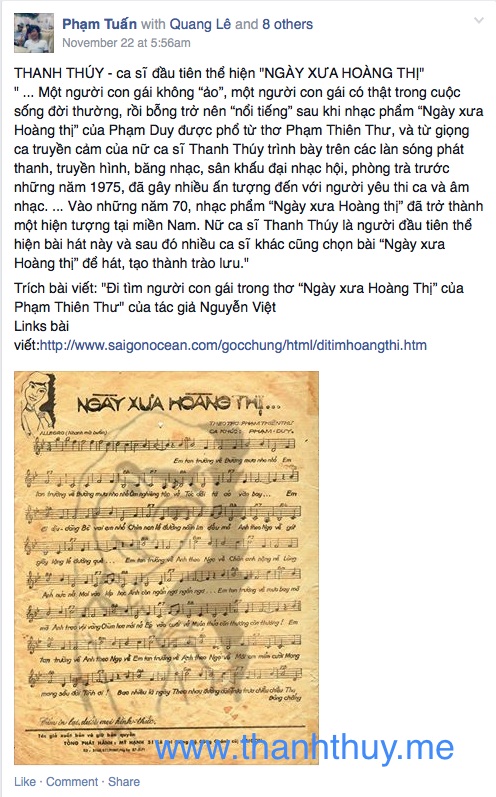 Phạm Tuấn with Quang Lê and 8 others
November 22 at 5:56am
THANH THÚY - ca sĩ đầu tiên thể hiện "NGÀY XƯA HOÀNG THỊ"
" ... Một người con gái không “ảo”, một người con gái có thật trong cuộc
sống đời thường, rồi bỗng trở nên “nổi tiếng” sau khi nhạc phẩm “Ngày xưa
Hoàng thị” của Phạm Duy được phổ từ thơ Phạm Thiên Thư, và từ giọng
ca truyền cảm của nữ ca sĩ Thanh Thúy trình bày trên các làn sóng phát
thanh, truyền hình, băng nhạc, sân khấu đại nhạc hội, phòng trà trước
những năm 1975, đã gây nhiều ấn tượng đến với người yêu thi ca và âm
nhạc. ... Vào những năm 70, nhạc phẩm “Ngày xưa Hoàng thị” đã trở thành
một hiện tượng tại miền Nam. Nữ ca sĩ Thanh Thúy là người đầu tiên thể
hiện bài hát này và sau đó nhiều ca sĩ khác cũng chọn bài “Ngày xưa
Hoàng thị” để hát, tạo thành trào lưu."
Trích bài viết: "Đi tìm người con gái trong thơ “Ngày xưa Hoàng Thị” của
Phạm Thiên Thư" của tác giả Nguyễn Việt
Links bài
viết:http://www.saigonocean.com/gocchung/html/ditimhoangthi.htm
NGÀY XƯA HOÀNG THỊ...
THEO THƠ: PHẠM THIÊN THƯ
CA KHÚC: PHẠM-DUY
ALLEGRO
Em tan trường về Đường mưa nho nhỏ Em
tan trường về Đường mưa nho nhỏ Ôm nghiêng tập vở Tóc dài tà áo vờn bay... Em
đi dịu dàng Bờ vai em nhỏ Chim non lề đường nằm im dấu mỏ Anh theo Ngọ về
Em tan trường về Anh theo Ngọ về
Em
tan trường về Anh theo Ngọ về Em tan trường về Anh theo Ngọ về
TỔNG PHÁT HÀNH
www.thanhthuy.me
Like · Comment · Share